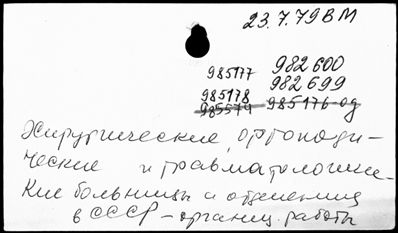 23.7.79 ВМ
985177 982600
982699
985178
985579 985176-од
Хирургические, ортопеди-
ческие и травматологичес-
кие больницы и отделения
в СССР – организ. работы